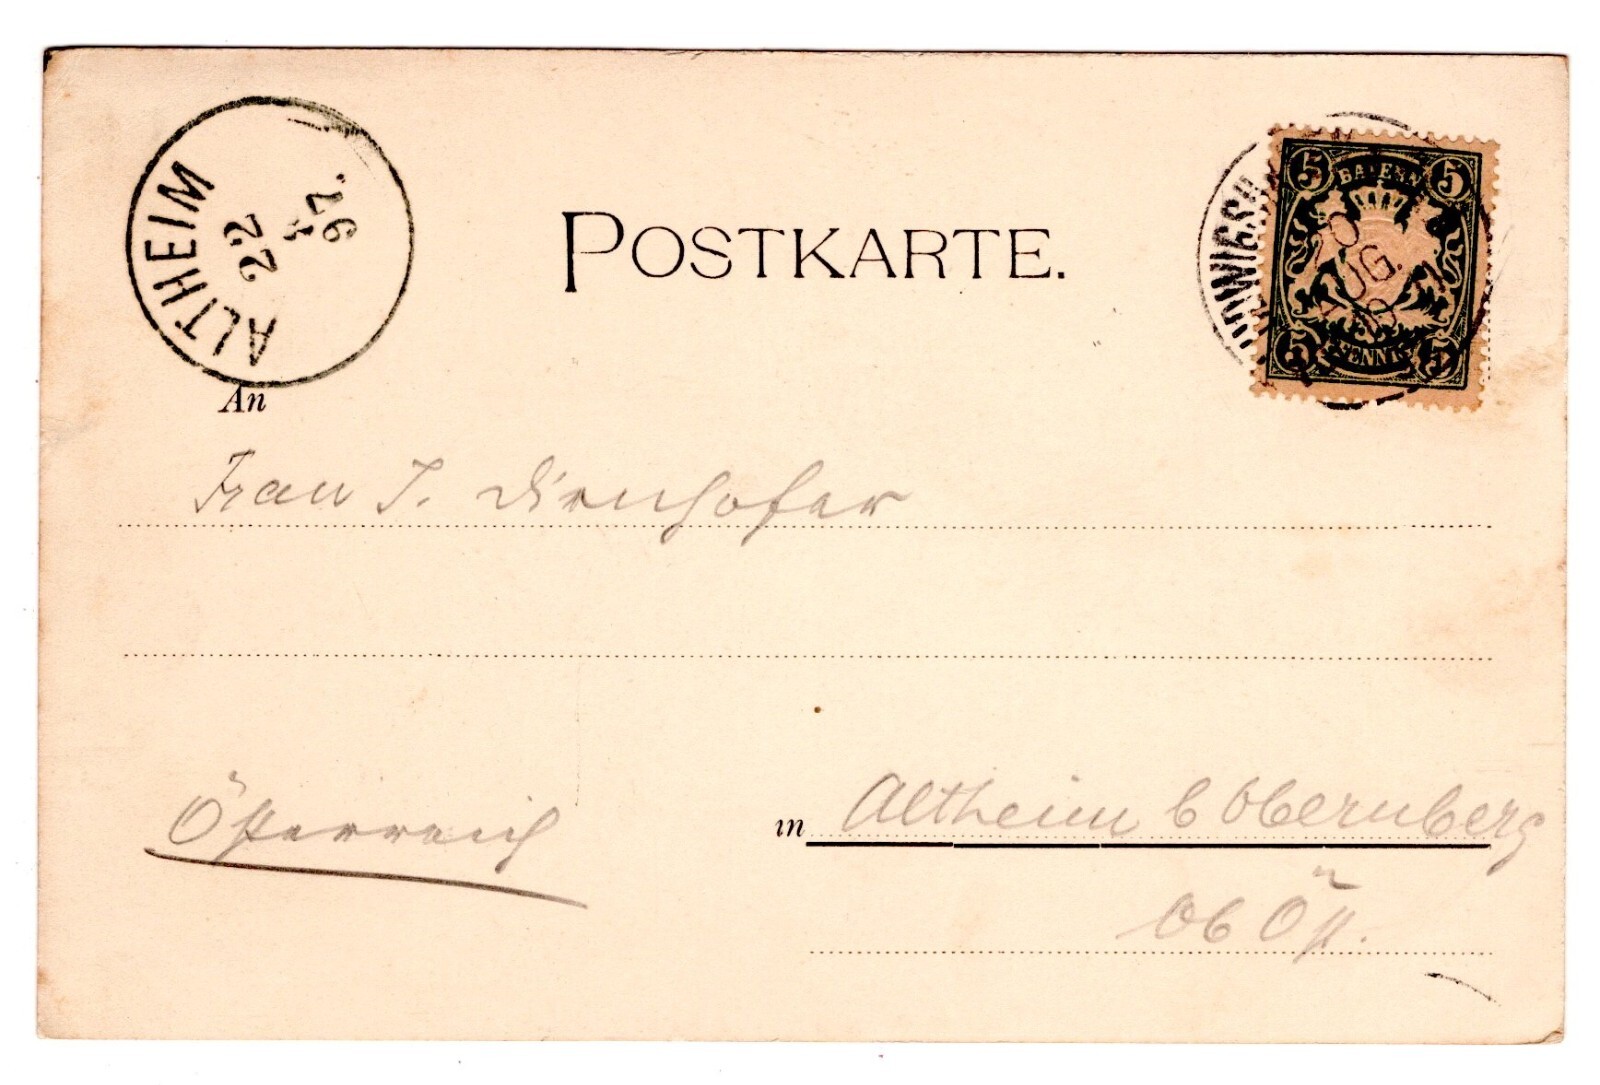 ALTHEIM
22
8
97.
POSTKARTE.
5 BAYERN 5
5 PFENNIG 5
An
Frau J. Dirnhofer
Österreich
in Altheim b Obernberg
Ob Öst.